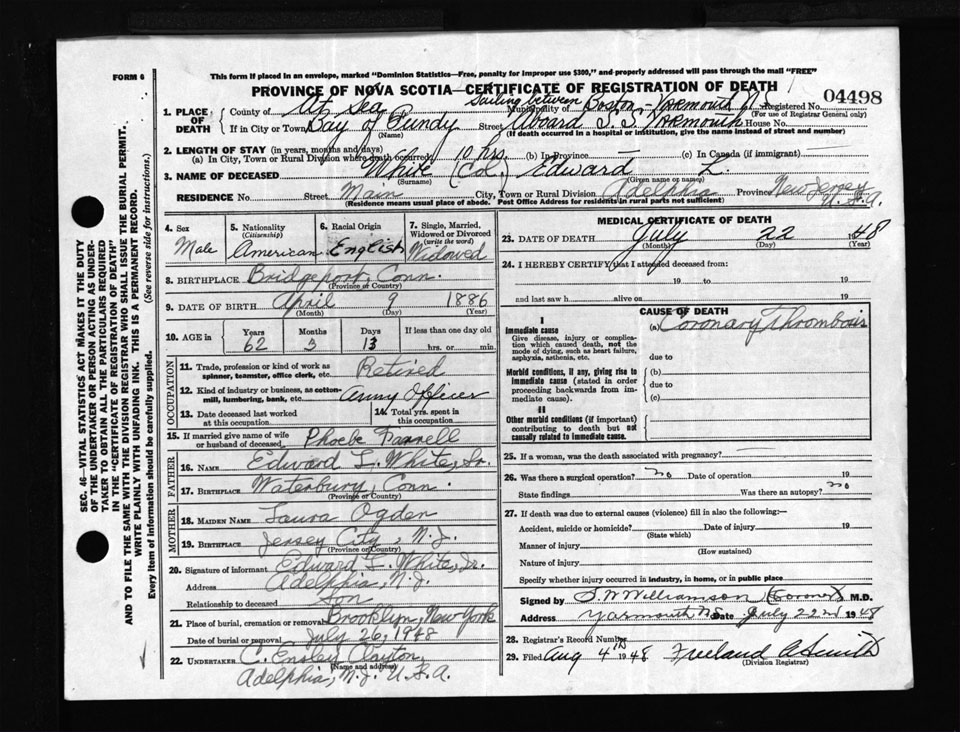 FORM 6
This form if placed in an envelope, marked "Dominion Statistics—Free, penalty for improper use $300," and properly addressed will pass through the mail "FREE"
PROVINCE OF NOVA SCOTIA—CERTIFICATE OF REGISTRATION OF DEATH
04498
Sailing between Boston - Yarmouth N.S.
1. PLACE OF DEATH County of At Sea Municipality of Registered No.
(For use of Registrar General only)
If in City or Town Bay of Fundy Street Aboard S.S. Yarmouth House No.
(Name) (If death occurred in a hospital or institution, give the name instead of street and number)
2. LENGTH OF STAY (in years, months and days)
(a) In City, Town or Rural Division where death occurred 10 hrs. (b) In Province — (c) In Canada (if immigrant) —
3. NAME OF DECEASED White (Col.) Edward L.
(Surname) (Given name or names)
RESIDENCE No. Street Main City, Town or Rural Division Adelphia Province New Jersey U.S.A.
(Residence means usual place of abode. Post Office Address for residents in rural parts not sufficient)
4. Sex Male
5. Nationality (Citizenship) American
6. Racial Origin English
7. Single, Married, Widowed or Divorced (write the word) Widowed
8. BIRTHPLACE Bridgeport, Conn.
(Province or Country)
9. DATE OF BIRTH April 9 1886
(Month) (Day) (Year)
10. AGE in Years 62 Months 3 Days 13 If less than one day old hrs. or min.
OCCUPATION
11. Trade, profession or kind of work as spinner, teamster, office clerk, etc. Retired
12. Kind of industry or business, as cotton-mill, lumbering, bank, etc. Army Officer
13. Date deceased last worked at this occupation
14. Total yrs. spent in this occupation
15. If married give name of wife or husband of deceased Phoebe Parnell
FATHER
16. NAME Edward L. White, Sr.
17. BIRTHPLACE Waterbury, Conn.
(Province or Country)
MOTHER
18. MAIDEN NAME Laura Ogden
19. BIRTHPLACE Jersey City, N.J.
(Province or Country)
20. Signature of informant Edward L. White, Jr.
Address Adelphia, N.J.
Relationship to deceased Son
21. Place of burial, cremation or removal Brooklyn, New York
Date of burial or removal July 26, 1948
22. UNDERTAKER C. Ensley Clayton,
(Name and address)
Adelphia, N.J. U.S.A.
MEDICAL CERTIFICATE OF DEATH
23. DATE OF DEATH July 22 1948
(Month) (Day) (Year)
24. I HEREBY CERTIFY that I attended deceased from:
19 to 19
and last saw h alive on 19
CAUSE OF DEATH
I
Immediate cause
Give disease, injury or complication which caused death, not the mode of dying, such as heart failure, asphyxia, asthenia, etc.
(a) Coronary Thrombosis
due to
Morbid conditions, if any, giving rise to immediate cause (stated in order proceeding backwards from immediate cause).
(b)
due to
(c)
II
Other morbid conditions (if important) contributing to death but not causally related to immediate cause.
25. If a woman, was the death associated with pregnancy? —
26. Was there a surgical operation? no Date of operation 19
State findings Was there an autopsy? no
27. If death was due to external causes (violence) fill in also the following:—
Accident, suicide or homicide? Date of injury 19
(State which)
Manner of injury
(How sustained)
Nature of injury
Specify whether injury occurred in industry, in home, or in public place
Signed by S. W. Williamson (Coroner) M.D.
Address Yarmouth N.S. Date July 22nd 1948
28. Registrar's Record Number
29. Filed Aug 4th 1948 Freeland A Smith
(Division Registrar)
SEC. 46—VITAL STATISTICS ACT MAKES IT THE DUTY
OF THE UNDERTAKER OR PERSON ACTING AS UNDER-
TAKER TO OBTAIN ALL THE PARTICULARS REQUIRED
IN THE "CERTIFICATE OF REGISTRATION OF DEATH"
AND TO FILE THE SAME WITH THE DIVISION REGISTRAR WHO SHALL ISSUE THE BURIAL PERMIT.
WRITE PLAINLY WITH UNFADING INK. THIS IS A PERMANENT RECORD.
Every item of information should be carefully supplied. (See reverse side for instructions.)